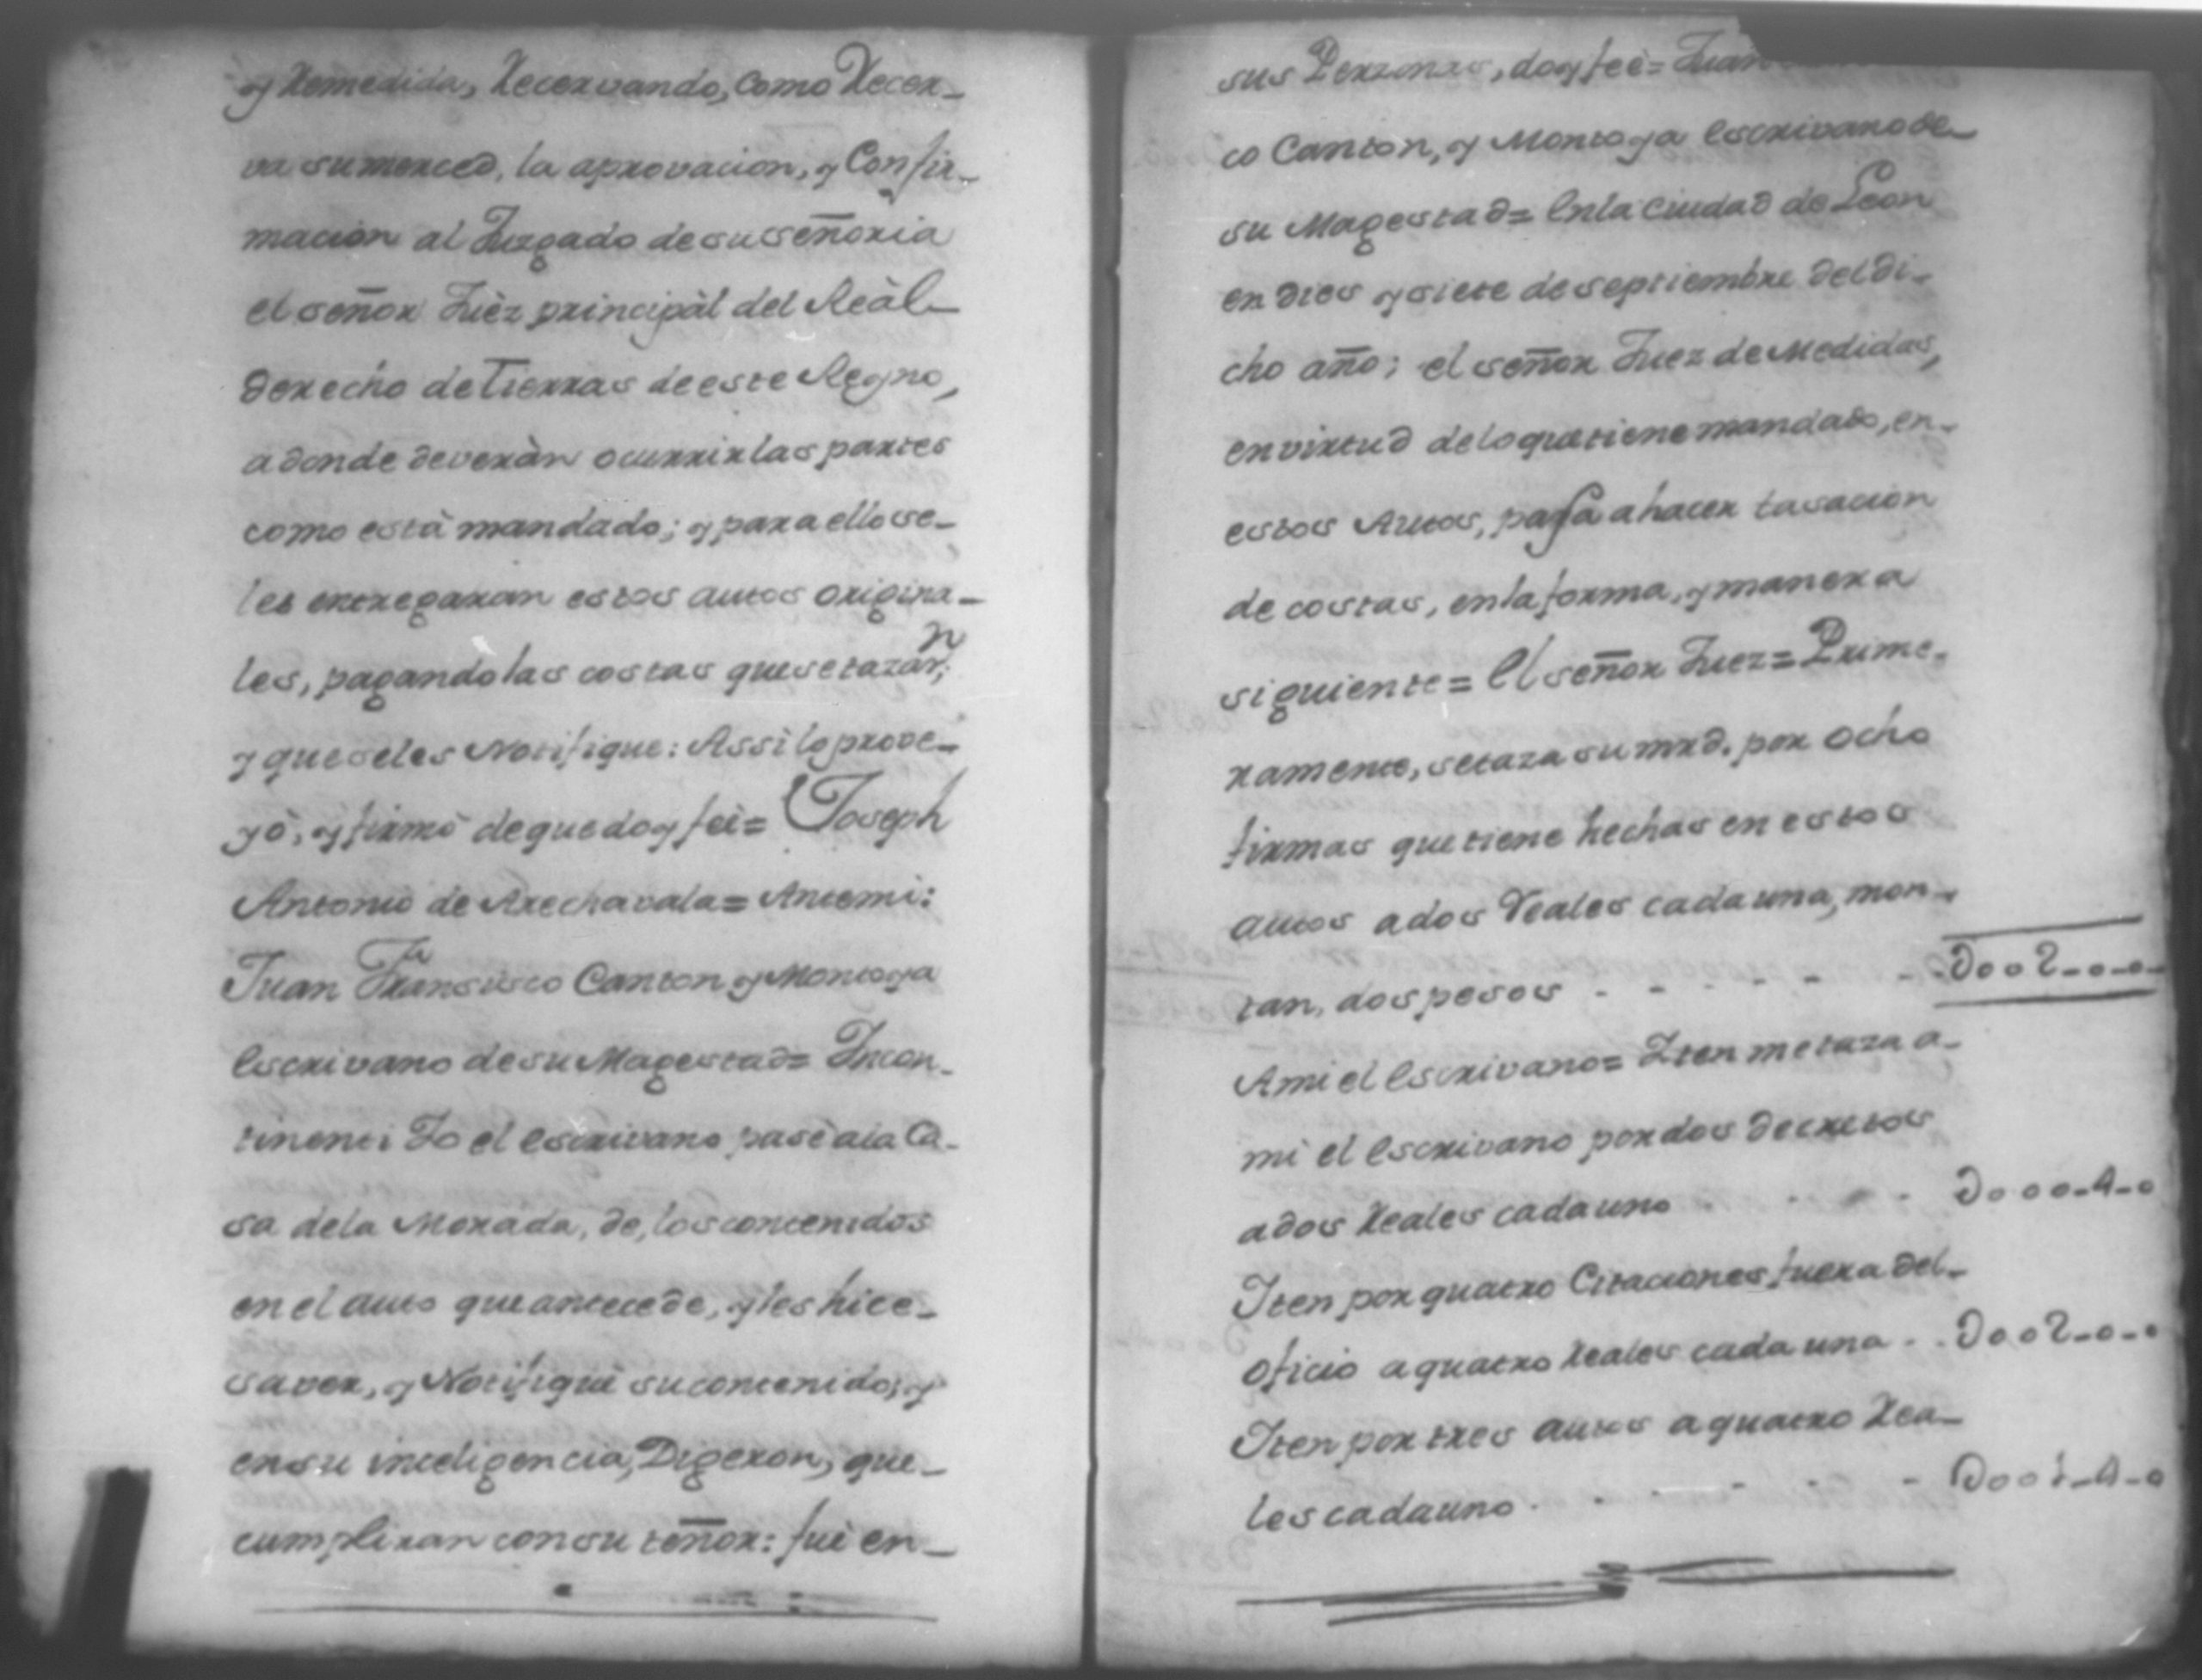 y Remedida, Recervando, como Recer-
va su merced, la aprovacion, y Confir-
macion al Juzgado de su señoria
el señor Juèz principàl del Reàl
derecho de Tierras de este Reyno,
a donde deveràn ocurrir las partes
como està mandado; y para ello se-
les entregaran estos autos origina-
les, pagando las costas que se tazàrn;
y que se les Notifique: Assi lo prove-
yò, y firmò de que doy feè= Joseph
Antonio de Arechavala= Antemi:
Juan Fransisco Canton y Montoya
Escrivano de su Magestad= Incon-
tinenti Yo el escrivano pasè a la Ca-
sa de la Morada, de, los contenidos
en el auto que antecede, y les hice-
saver, y Notifiquè su contenido; y
en su inteligencia, Digeron, que-
cumpliran con su tenor: fuè en-
sus Perzonas, doy feè= Juan
co Canton, y Montoya Escrivano de
su Magestad= En la Ciudad de Leon
en dies y siete de septiembre del di-
cho año; el señor Juez de Medidas,
en virtud de lo que tiene mandado, en-
estos Autos, passa a hacer tasacion
de costas, en la forma, y manera
siguiente= El señor Juez= Prime-
ramente, se taza su mrd. por ocho
firmas que tiene hechas en estos
autos a dos Reales cada una, mon-
tan, dos pesos - - - - - - D002-0-0-
Ami el Escrivano= Iten me taza a-
mi el Escrivano por dos decretos
a dos Reales cada uno . . . . D000-4-0
Iten por quatro Citaciones fuera del-
oficio a quatro Reales cada una . . D002-0-0
Iten por tres autos a quatro Rea-
les cada uno . - - - - - D001-4-0